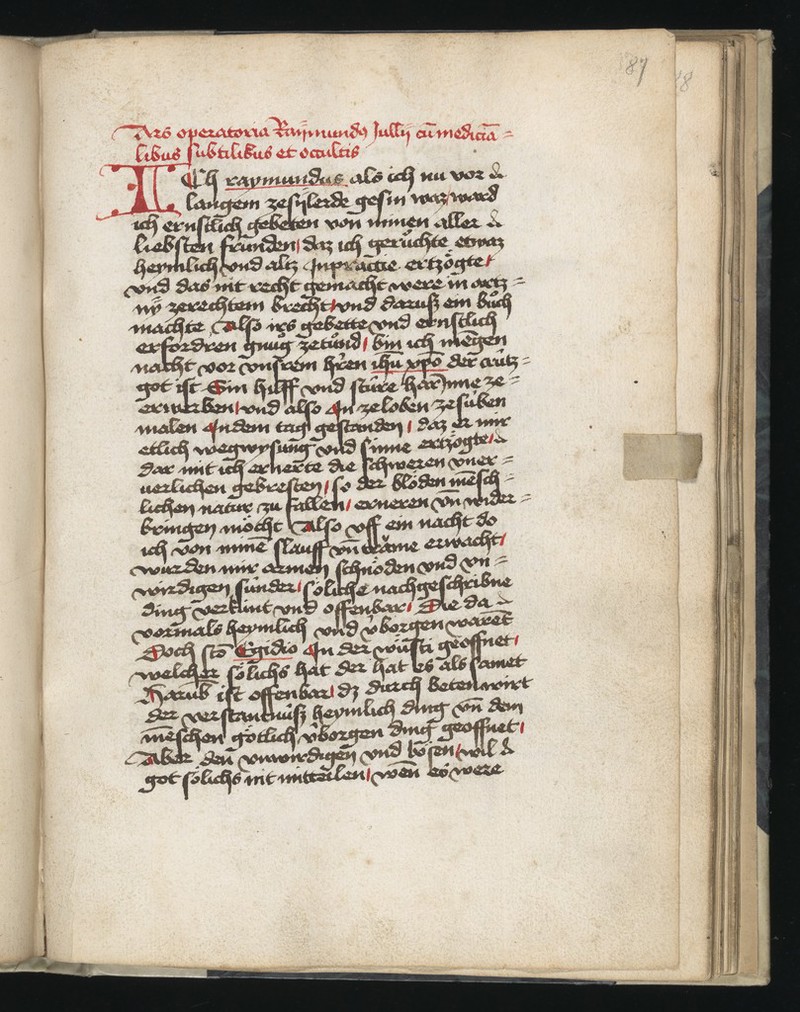 87
88
Ars operatoria Raymundꝯ Jullij cū medicīa=
libus subtilibus et occultis
ICh raymundus als ich nu vor
langem ze sijlerde gesin waz / ward
ich ernstlich gebeten von minen aller
liebsten frúnden / daz ich gerůchte etwaz
heymlich vnd altz In practie ertzögte /
vnd das nit recht gemacht were in artz=
nÿ zerechtem brecht / vnd daruſz ein bůch
machte Also irs gebette vnd ernstlich
erfordren gnůg zetůnd / bin ich mengen
nacht vor vnsrem hr̄en ih̄u xp̄o der crútz=
got ist Ein hilff vnd stúre har Inne ze=
erwerben / vnd also In ze loben ze súben
malen In dem tag gestanden / daz er mir
etlich wegwysung vnd sinne ertzögte /
dar mit ich ernerte die schweren vner=
uerlichen gebresten / so der blöden mēsch=
lichen natur zu fallen / erneren vn̄ wider=
bringen möcht Also vff ein nacht do
ich von minē slauff vn̄ träme erwacht /
wurden mir armen schnöden vnd vn=
wirdigen súnder / söliche nachgeschribne
ding verkúnt vnd offenbar / Die da
vormals heymlich vnd v̄borgen warēt
Doch sc̄o Egidio In der wústi geoffnet /
welcher sölichs hat der hat es als samet
Harūb ist offenbar / dz durch beten wirt
der verstantnúſz heymlich ding vn̄ dem
mēschen götlich v̄borgen ding geoffnet /
Aber den vnwirdigen vnd bösen / wil
got sölichs nit mitteilen / wen̄ es were